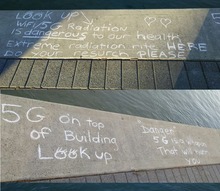 LOOK UP
WiFi/5G Radiation
is dangerous to our health
Extreme radiation rite HERE
Do your resurch PLEASE
5G on top
of Building
Look up
Danger
5G is a
That will
you